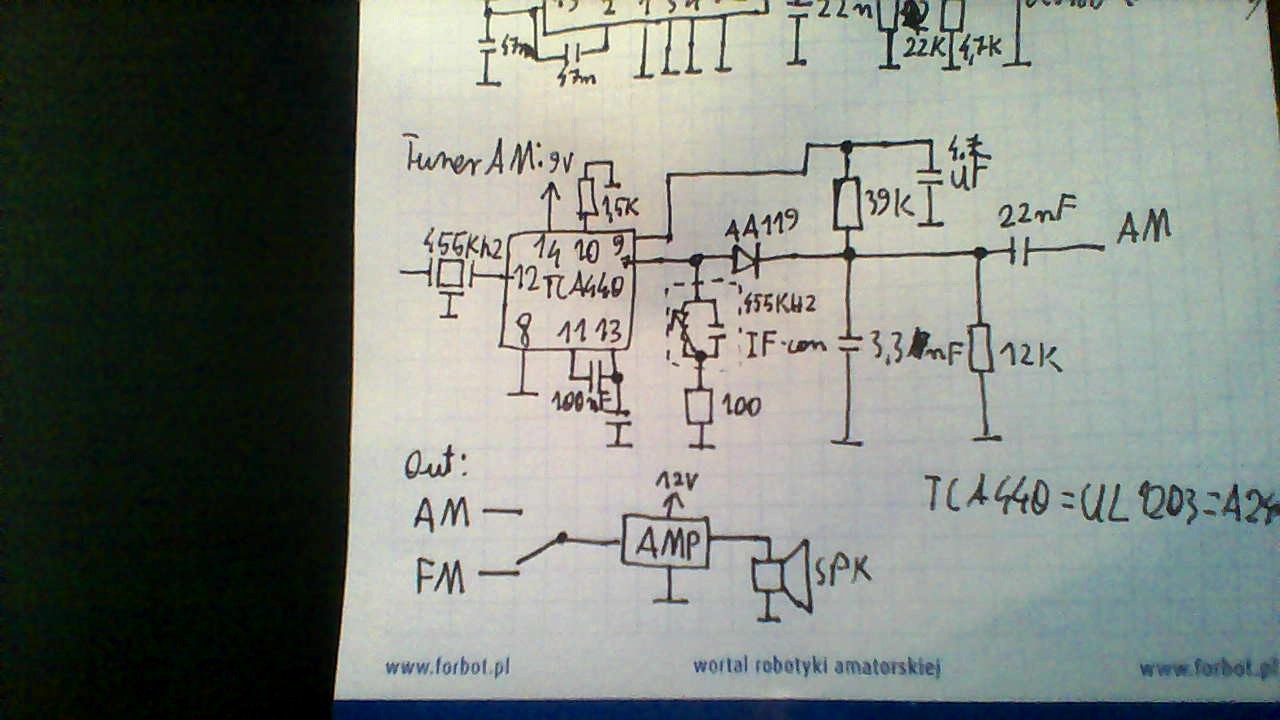 13 2 1 3 4
22n
47n
47n
22K 4,7K
Tuner AM: 9V
1,5K
4,7
uF
39K
22nF
AM
AA119
455KHz
14 10 9
12 TCA440
7
8 11 13
100nF
455KHz
IF-con
3,3nF
12K
100
Out:
12V
AM
AMP
FM
SPK
TCA440=UL1203=A24
www.forbot.pl wortal robotyki amatorskiej www.forbot.pl